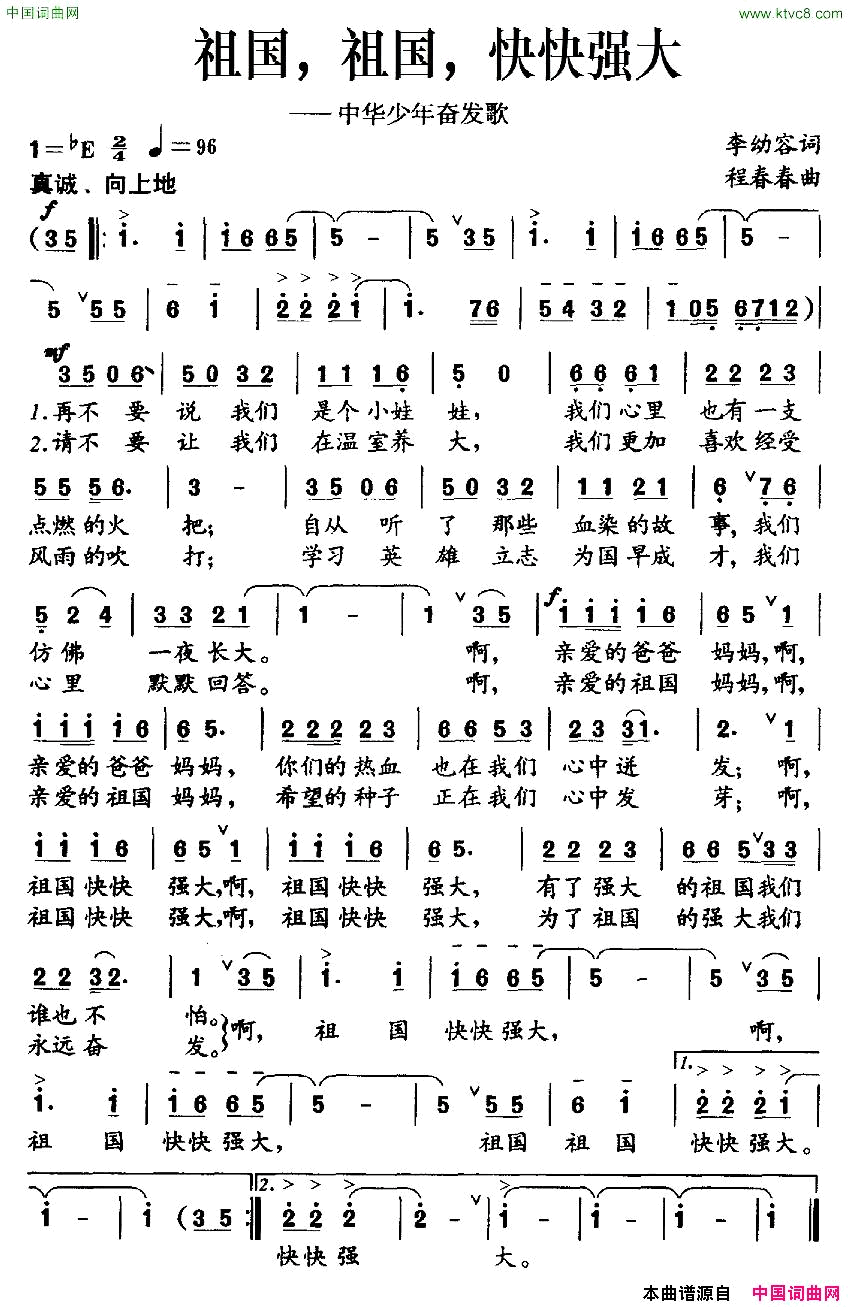 中国词曲网
www.ktvc8.com
祖国，祖国，快快强大
——中华少年奋发歌
1=♭E 2/4 ♩=96
李幼容词
真诚、向上地
程春春曲
f
(3 5 ‖: i. i | i 6 6 6 5 | 5 - | 5 ∨ 3 5 | i. i | i 6 6 6 5 | 5 - |
5 ∨ 5 5 | 6 i | 2 2 2 i | i. 7 6 | 5 4 3 2 | 1 0 5 6 7 1 2) |
mf
3 5 0 6 | 5 0 3 2 | 1 1 1 6 | 5 0 | 6 6 6 1 | 2 2 2 3 |
1.再不 要 说 我们 是个小娃 娃， 我们心里 也有一支
2.请不 要 让 我们 在温室养 大， 我们更加 喜欢经受
5 5 5 6. | 3 - | 3 5 0 6 | 5 0 3 2 | 1 1 2 1 | 6 ∨ 7 6 |
点燃的火 把； 自从 听 了 那些 血染的故 事，我们
风雨的吹 打； 学习 英 雄 立志 为国早成 才，我们
5 2 4 | 3 3 2 1 | 1 - | 1 ∨ 3 5 | f i i i i 6 | 6 5 ∨ 1 |
仿佛 一夜长大。 啊， 亲爱的爸爸 妈妈，啊，
心里 默默回答。 啊， 亲爱的祖国 妈妈，啊，
i i i i 6 | 6 5. | 2 2 2 2 3 | 6 6 5 3 | 2 3 3 1. | 2. ∨ 1 |
亲爱的爸爸 妈妈， 你们的热血 也在我们 心中迸 发；啊，
亲爱的祖国 妈妈， 希望的种子 正在我们 心中发 芽；啊，
i i i 6 | 6 5 ∨ 1 | i i i 6 | 6 5. | 2 2 2 3 | 6 6 5 ∨ 3 3 |
祖国快快 强大，啊， 祖国快快 强大， 有了强大 的祖国我们
祖国快快 强大，啊， 祖国快快 强大， 为了祖国 的强大我们
2 2 3 2. | 1 ∨ 3 5 | i. i | i 6 6 5 | 5 - | 5 ∨ 3 5 |
谁也不 怕。
永远奋 发。} 啊， 祖 国 快快强大， 啊，
1.
i. i | i 6 6 5 | 5 - | 5 ∨ 5 5 | 6 i | 2 2 2 i |
祖 国 快快强大， 祖国 祖 国 快快强大。
2.
i - | i (3 5 :‖ 2 2 2 | 2 - ∨ | i - | i - | i - ‖
快快强 大。
本曲谱源自 中国词曲网